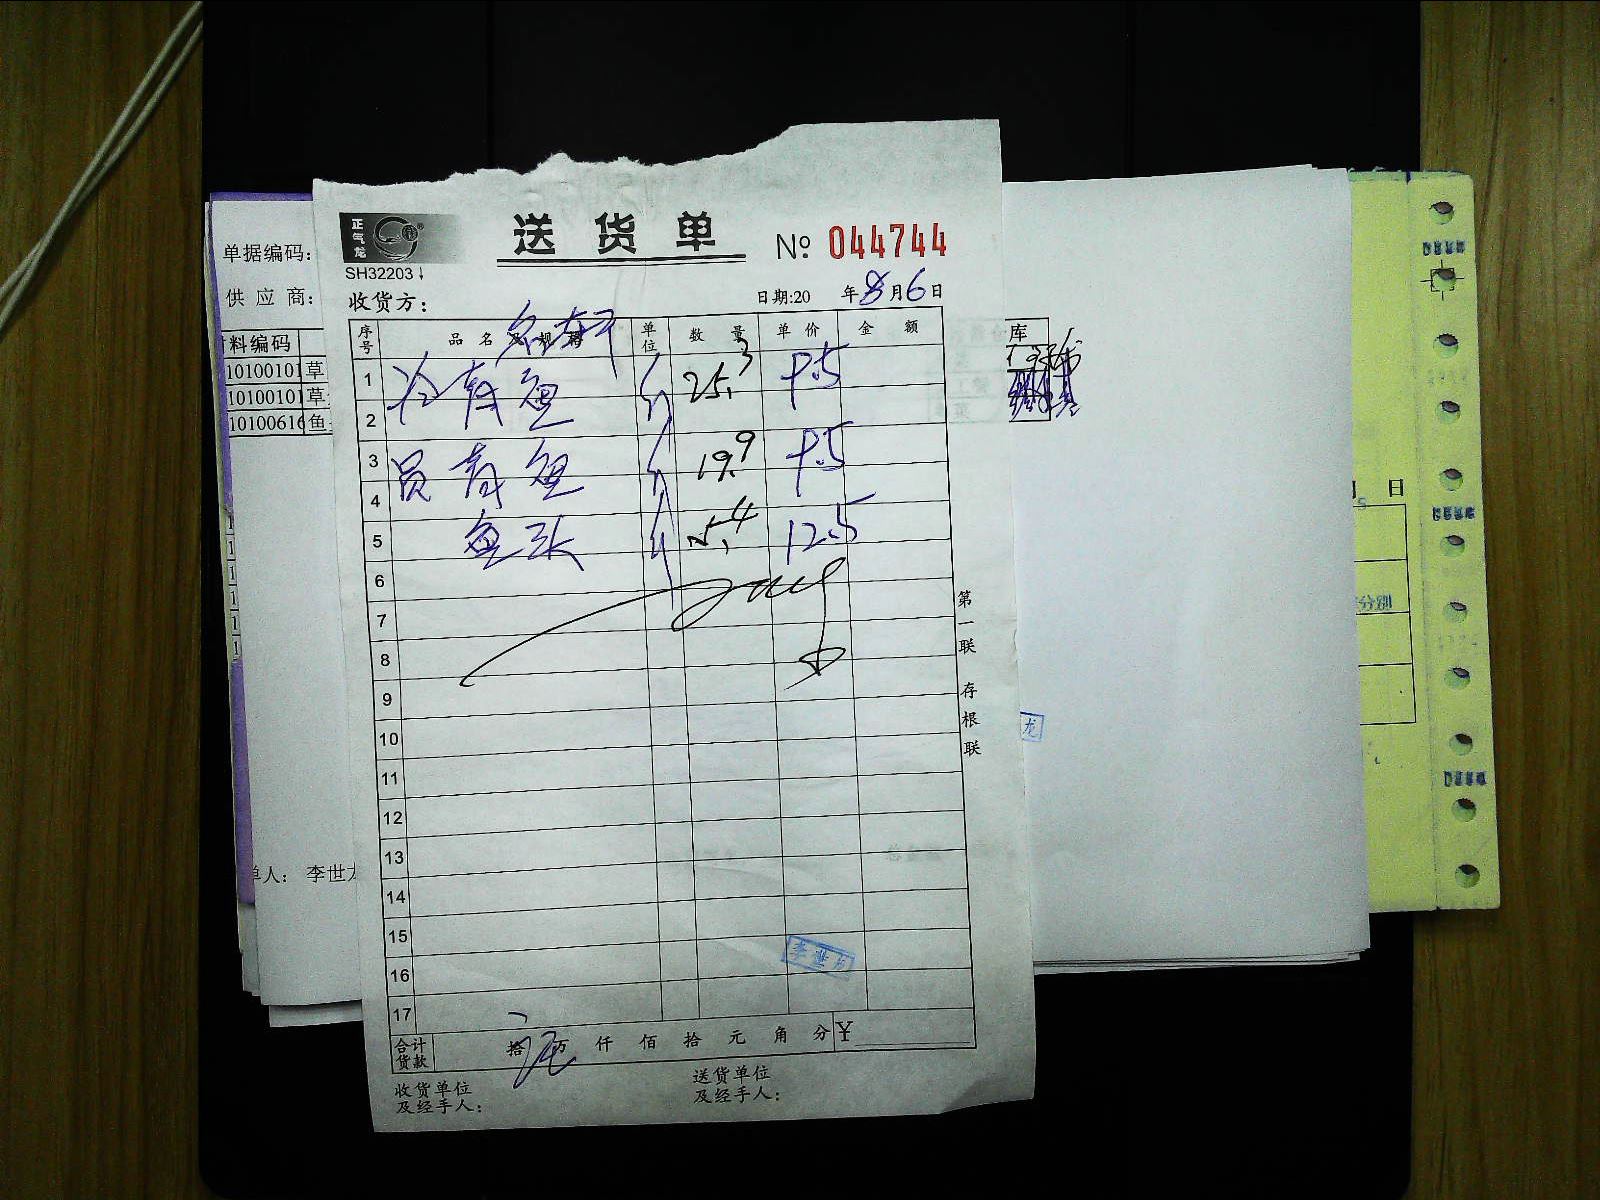 正气龙
送货单
No 044744
SH32203
收货方:
日期:20 年8月6日
单据编码:
供应商:
序号 品名及规格 单位 数量 单价 金额
料编码
库
10100101 草
10100101 草
10100616 鱼
1 冷青鱼 25.3 9.5
2
3 青鱼 19.9 9.5
4
5 鱼头 5.4 12.5
6
7
8
9
10
11
12
13
14
15
16
17
第一联 存根联
月 日
龙
单人: 李世
李世
合计货款 拾 万 仟 佰 拾 元 角 分 ¥
收货单位及经手人:
送货单位及经手人: